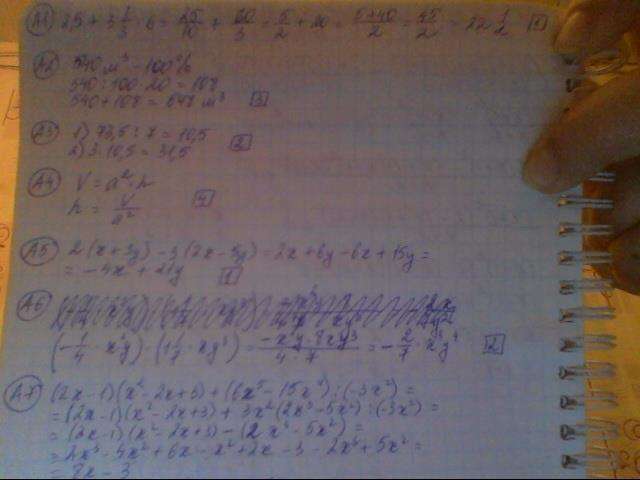 A1 2,5 + 3 1/3 · 6 = 25/10 + 60/3 = 5/2 + 20 = (5+40)/2 = 45/2 = 22 1/2 [1]
A2 540 м³ - 100%
540 : 100 · 20 = 108
540 + 108 = 648 м³ [3]
A3 1) 73,5 : 7 = 10,5
2) 3 · 10,5 = 31,5 [2]
A4 V = a² · h
h = V/a² [4]
A5 2(x+3y) - 3(2x-5y) = 2x + 6y - 6x + 15y =
= -4x + 21y [1]
A6
(-1/4 · x³y) · (1 1/7 · xy³) = (-x³y · 8xy³)/(4 · 7) = -2/7 · x⁴y⁴ [2]
A7 (2x-1)(x²-2x+3) + (6x⁵-15x⁴) : (-3x²) =
= (2x-1)(x²-2x+3) + 3x²(2x³-5x²) : (-3x²) =
= (2x-1)(x²-2x+3) - (2x³-5x²) =
= 2x³ - 4x² + 6x - x² + 2x - 3 - 2x³ + 5x² =
= 8x - 3